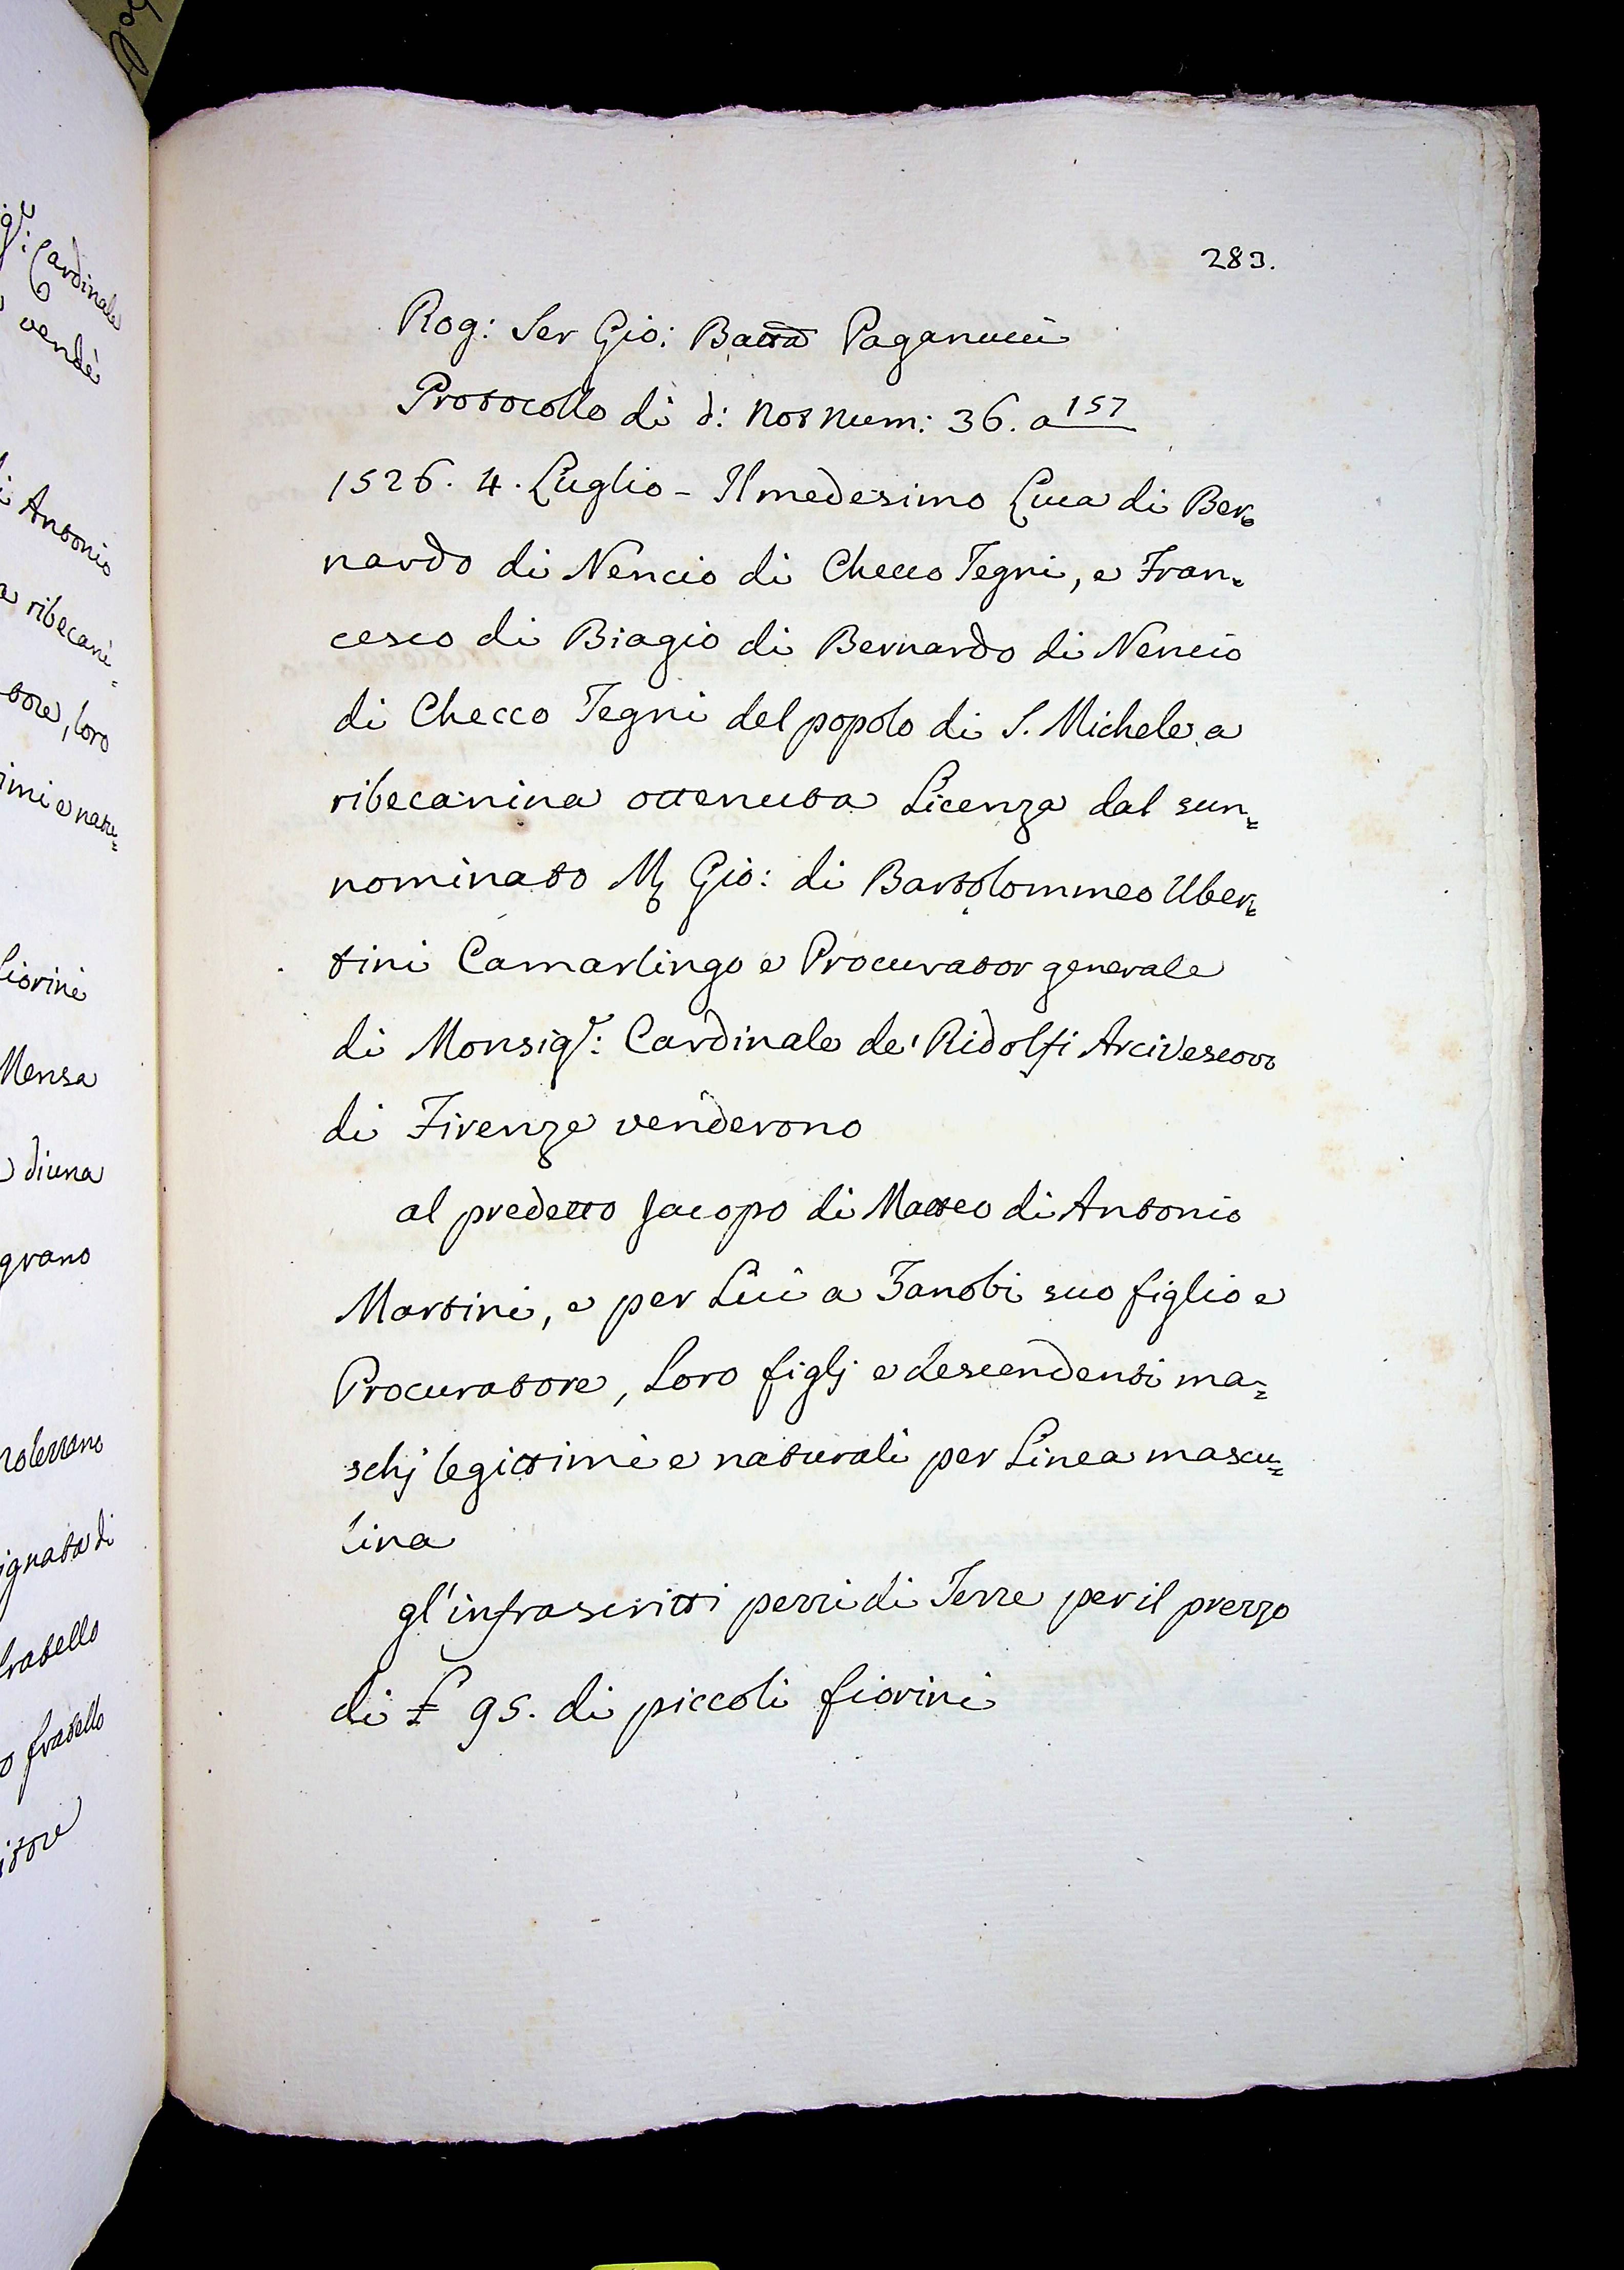 283.
Rog: Ser Gio: Batta Paganucci
Protocollo di d: Not Num: 36. a 157
1526. 4. Luglio - Il medesimo Luca di Ber=
nardo di Nencio di Checco Tegni, e Fran=
cesco di Biagio di Bernardo di Nencio
di Checco Tegni del popolo di S. Michele a
ribecanina ottenuta Licenza dal sun=
nominato M Gio: di Bartolommeo Uber=
tini Camarlingo e Procurator generale
di Monsigr: Cardinale de' Ridolfi Arcivescovo
di Firenze venderono
al predetto Jacopo di Matteo di Antonio
Martini, e per Lui a Zanobi suo figlio e
Procuratore, Loro figlj e descendenti ma=
schj legittimi e naturali per Linea mascu=
lina
gl'infrascritti pezzi di Terre per il prezzo
di £ 95. di piccoli fiorini
gr: Cardinale
vendè
Antonio
ribecani=
tore, loro
imi e natu=
fiorini
Mensa
di una
grano
ignata di
fratello
fratello